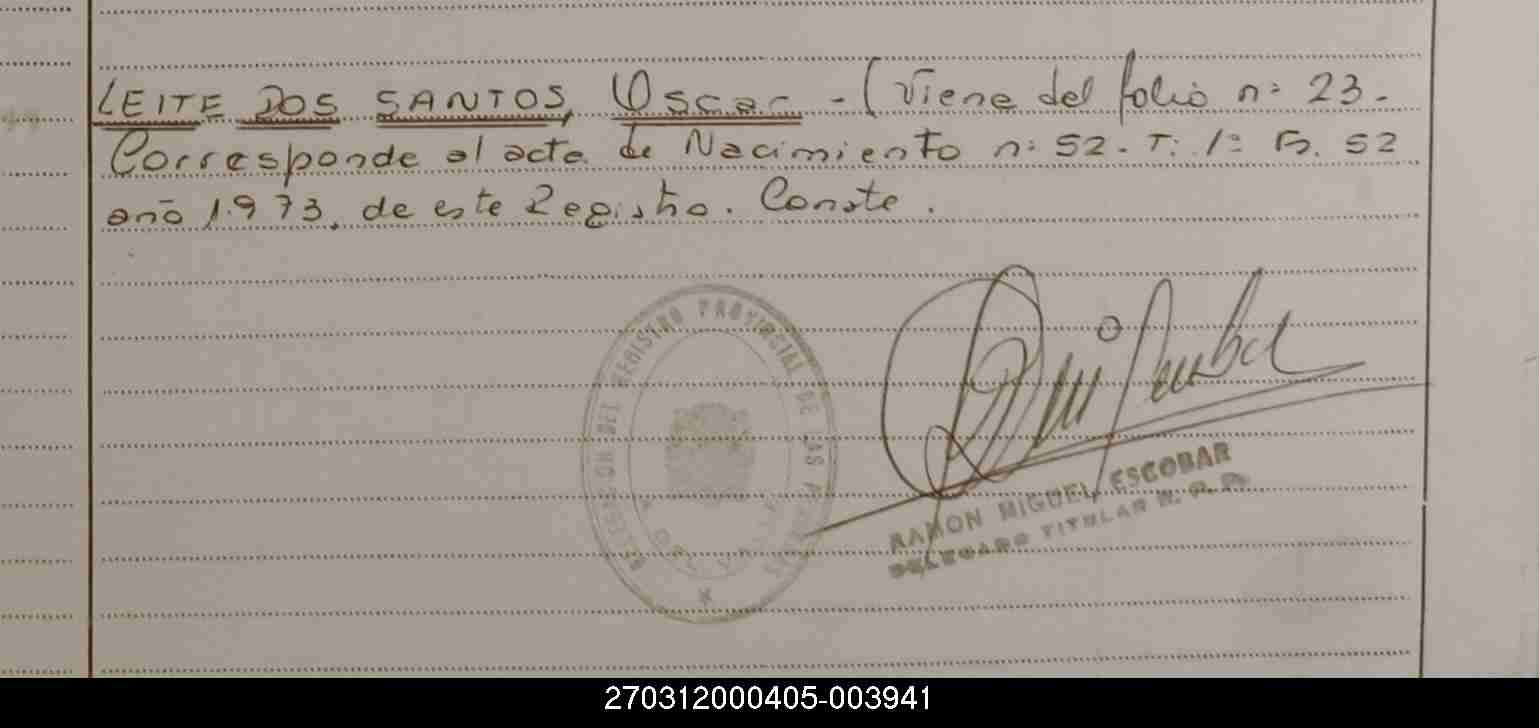 LEITE DOS SANTOS, Oscar - (Viene del folio n: 23 -
Corresponde al acta de Nacimiento n: 52. T: 1º F. 52
año 1.973, de este Registro. Conste.
DELEGACION DEL REGISTRO PROVINCIAL DE LAS PERSONAS
RAMON MIGUEL ESCOBAR
DELEGADO TITULAR R. P. P.
270312000405-003941